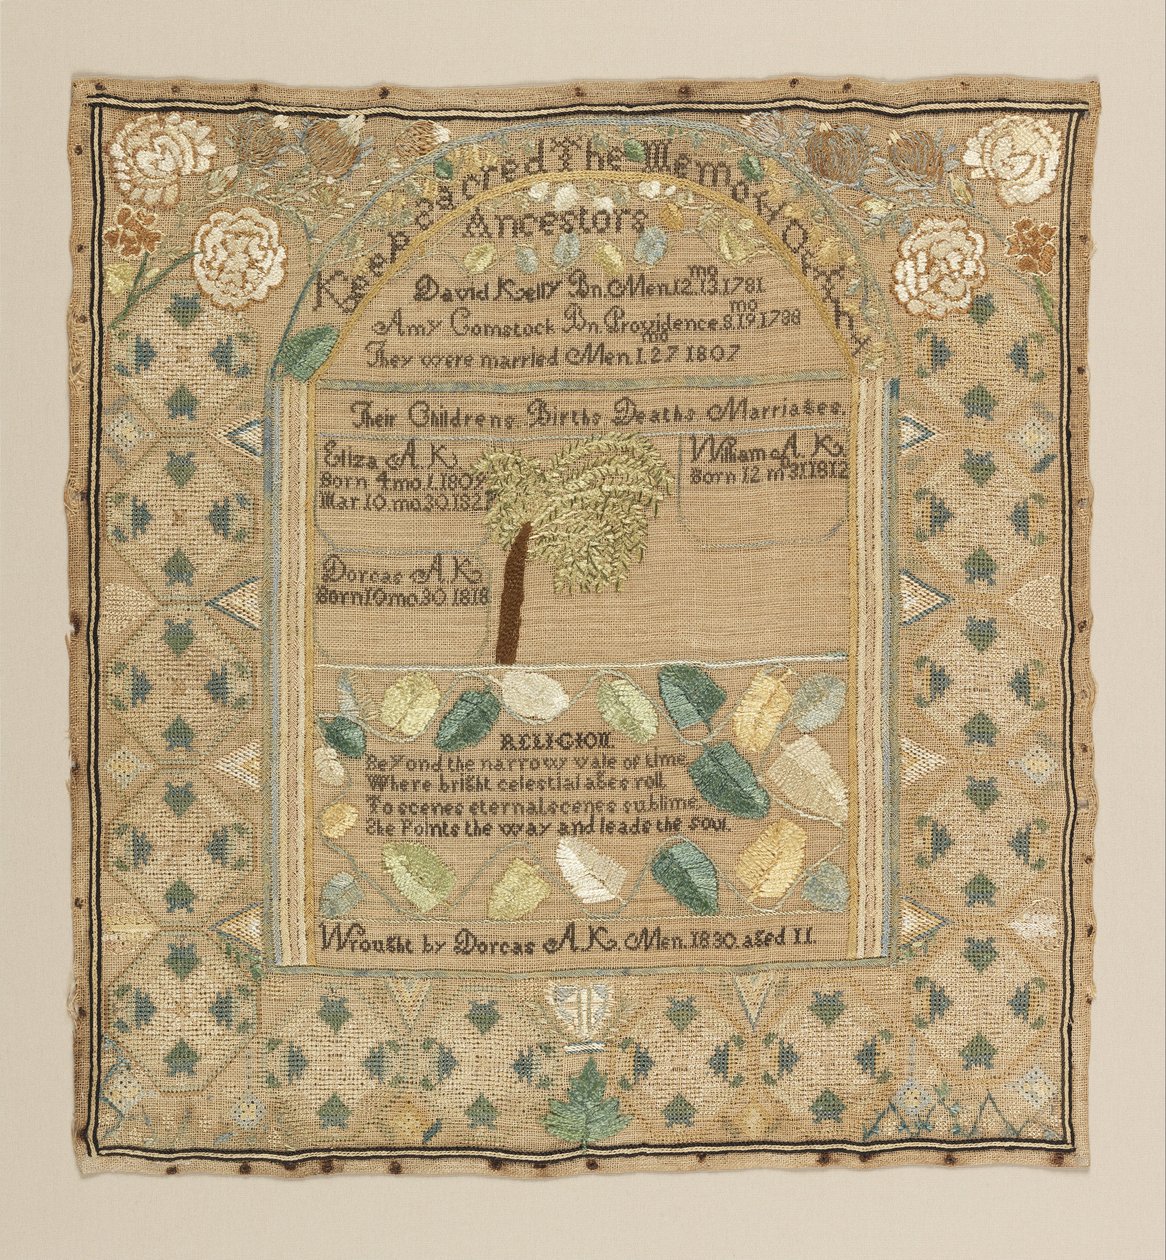 Keep Sacred The Memory Of Yhy
Ancestors
David Kelly Bn. Men. 12 mo 13. 1781
Amy Comstock Bn Providence. 8 mo 19. 1788
They were married Men. 1 mo 27 1807
Their Childrens. Births Deaths Marriages.
Eliza A. K
Born 4 mo 1. 1809
Mar. 10. mo 30. 182
William A. K.
Born 12 mo 31 1812
Dorcas A. K
Born 10 mo 30 1818
RELIGION.
Beyond the narrow vale of time
Where bright celestial ages roll
To scenes eternal scenes sublime
She Points the way and leads the soul.
Wrought by Dorcas A. K. Men. 1830. aged 11.